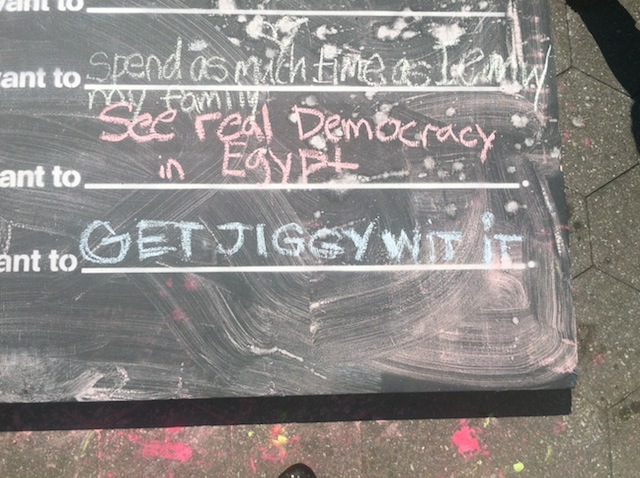 ant to
ant to spend as much time as I can w/
my family
See real Democracy
ant to in Egypt.
ant to GET JIGGY WIT iT.